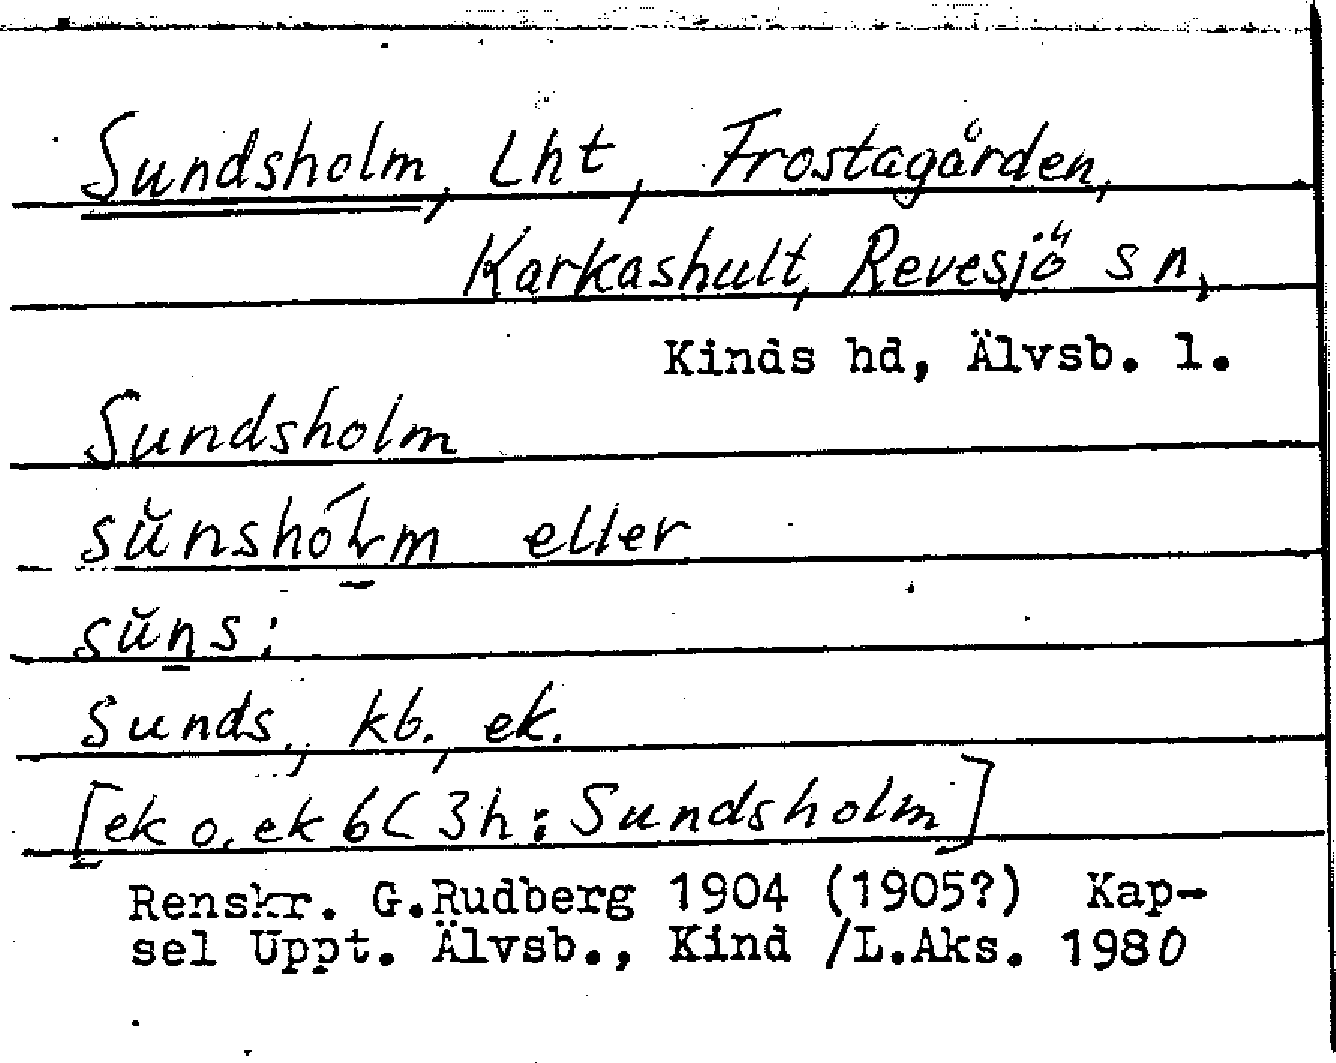 Sundsholm, Lht, Frostagården,
Karkashult, Revesjö sn,
Kinds hd, Älvsb. l.
Sundsholm
eller
sŭns:
Sunds., kb., ek.
[ek o. ek 6C 3h: Sundsholm]
Renskr. G.Rudberg 1904 (1905?) Kap-
sel Uppt. Älvsb., Kind /L.Aks. 1980